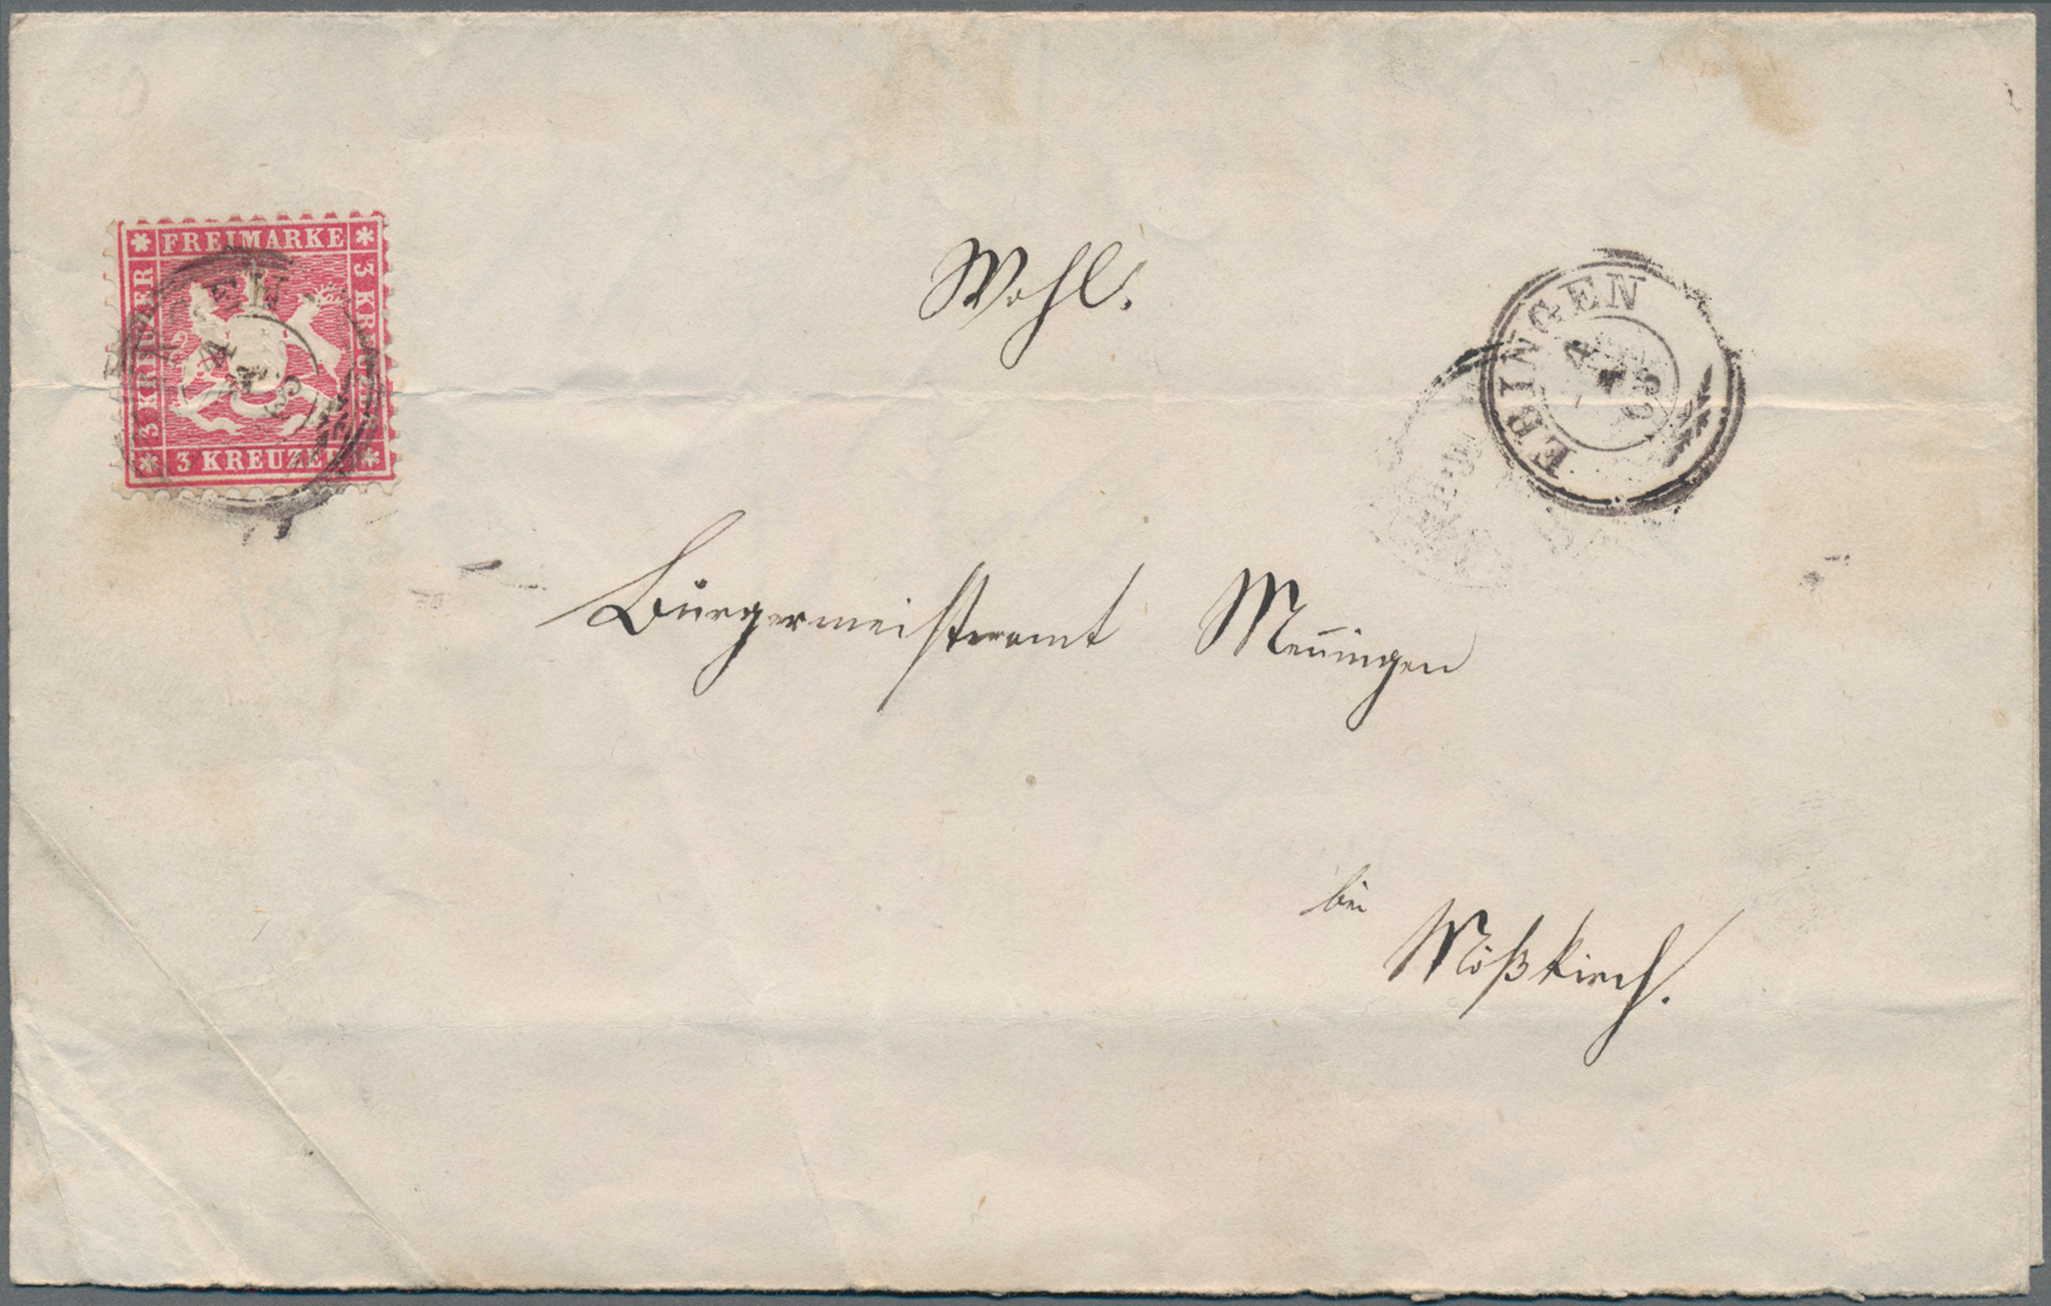 FREIMARKE
3 KREUZER
3 KREUZER
3 KREUZER
EBINGEN
4
Wohl.
Bürgermeisteramt Meñingen
bei
Mößkirch.